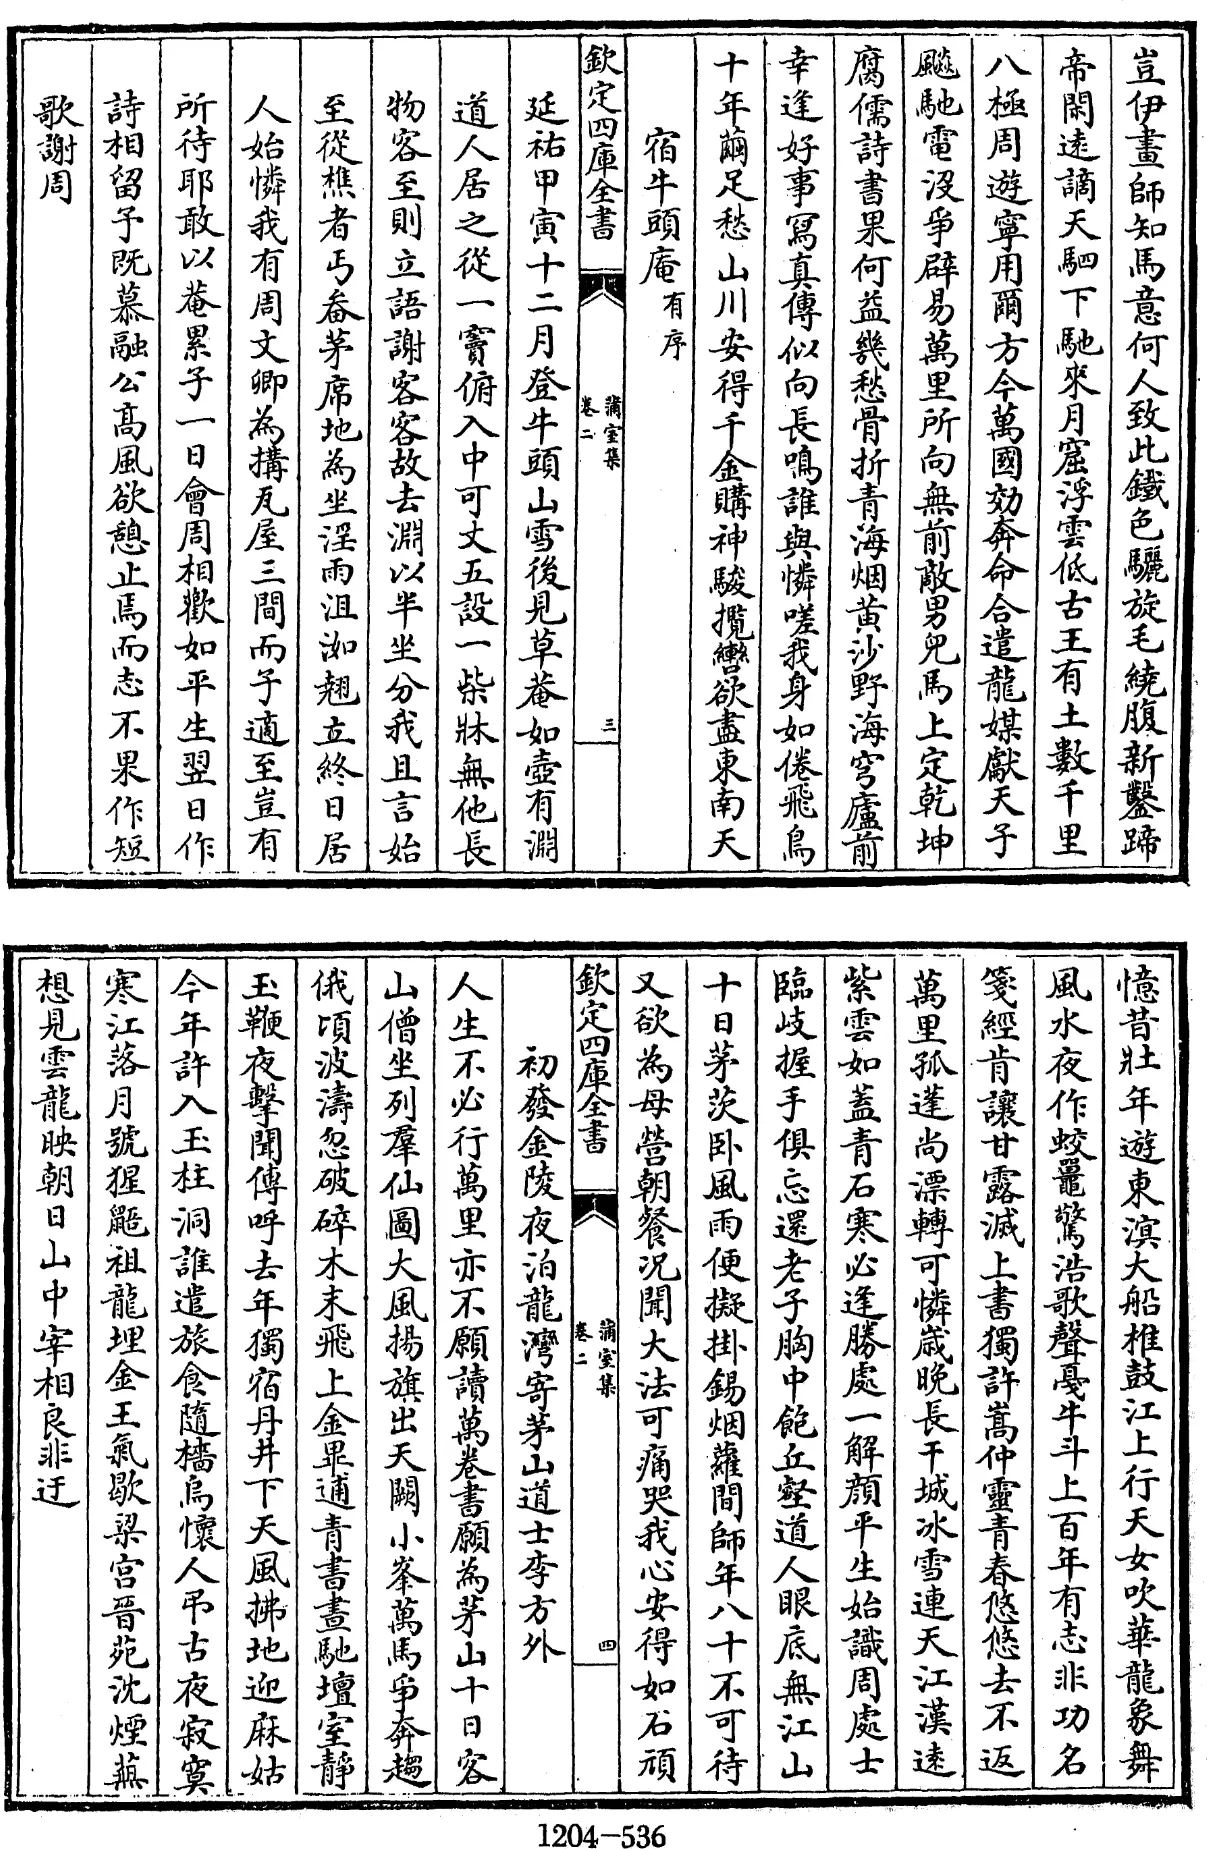 豈伊畫師知馬意何人致此鐵色驪旋毛繞腹新鑿蹄
帝閑逺謫天駟下馳來月窟浮雲低古王有土數千里
八極周遊寧用爾方今萬國効奔命合遣龍媒獻天子
飈馳電沒爭辟易萬里所向無前敵男兒馬上定乾坤
腐儒詩書果何益幾愁骨折青海烟黄沙野海穹廬前
幸逢好事寫真傳似向長鳴誰與憐嗟我身如倦飛鳥
十年繭足愁山川安得千金購神駿攬轡欲盡東南天
宿牛頭庵有序
欽定四庫全書
蒲室集
卷二
三
延祐甲寅十二月登牛頭山雪後見草菴如壺有淵
道人居之從一竇俯入中可丈五設一柴牀無他長
物客至則立語謝客客故去淵以半坐分我且言始
至從樵者丐畚茅席地為坐淫雨沮洳翹立終日居
人始憐我有周文卿為搆瓦屋三間而子適至豈有
所待耶敢以菴累子一日會周相歡如平生翌日作
詩相留予既慕融公髙風欲憩止焉而志不果作短
歌謝周
憶昔壯年遊東濵大船椎鼓江上行天女吹華龍象舞
風水夜作蛟鼉驚浩歌聲戞牛斗上百年有志非功名
箋經肯讓甘露滅上書獨許嵩仲靈青春悠悠去不返
萬里孤蓬尚漂轉可憐嵗晚長干城冰雪連天江漢逺
紫雲如蓋青石寒必逢勝處一解顔平生始識周處士
臨岐握手俱忘還老子胸中飽丘壑道人眼底無江山
十日茅茨卧風雨便擬掛錫烟蘿間師年八十不可待
又欲為母營朝餐况聞大法可痛哭我心安得如石頑
欽定四庫全書
蒲室集
卷二
四
初發金陵夜泊龍灣寄茅山道士李方外
人生不必行萬里亦不願讀萬卷書願為茅山十日客
山僧坐列羣仙圖大風揚旗出天闕小峯萬馬爭奔趨
俄頃波濤忽破碎木末飛上金罘逋青書晝馳壇室靜
玉鞭夜擊聞傳呼去年獨宿丹井下天風拂地迎麻姑
今年許入玉柱洞誰遣旅食隨檣烏懐人弔古夜寂寞
寒江落月號猩鼯祖龍埋金王氣歇梁宫晉苑沈煙蕪
想見雲龍映朝日山中宰相良非迂
1204-536